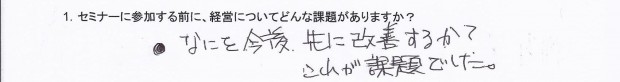 1. セミナーに参加する前に、経営についてどんな課題がありますか？
● なにを今後、先に改善するか？
これが課題でした。